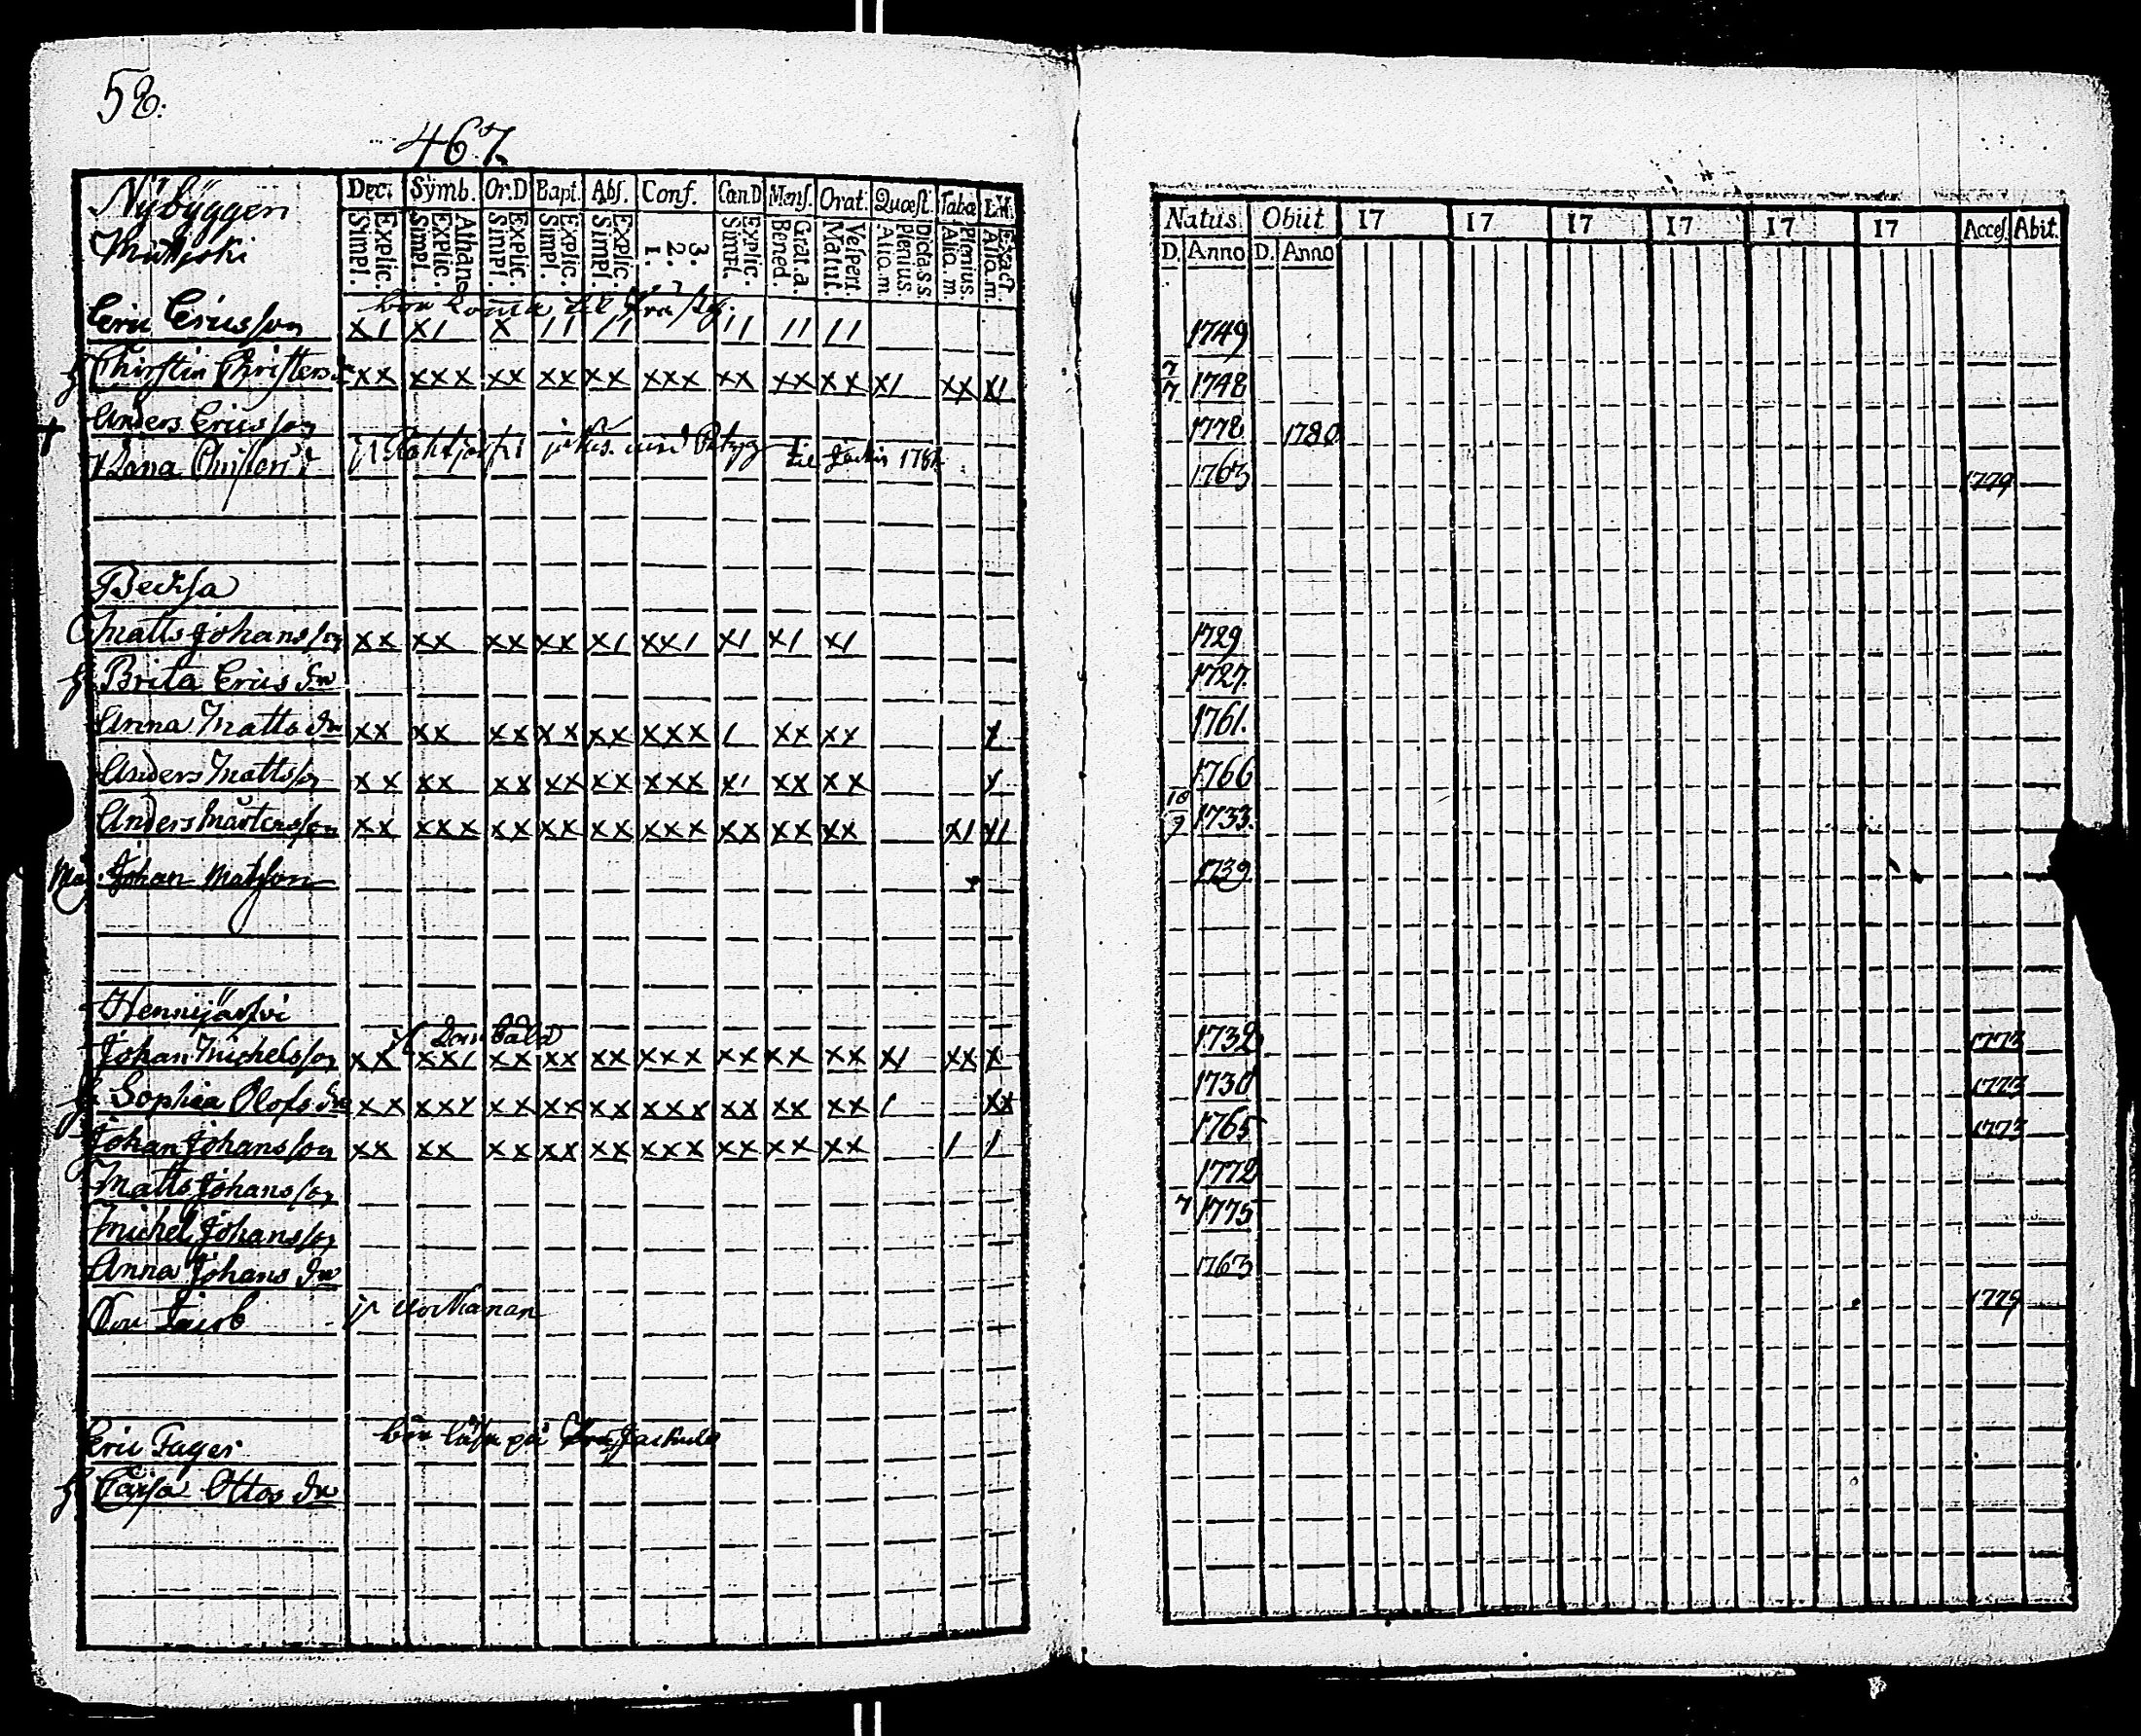 58.
467.
Nÿbÿggen
Dec. Sÿmb. Or.D Bapt. Abs. Conf. Cœn.D Mens. Orat. Quæst. Tabæ
Explic. Simpl. Athan. Explic. Simpl. Explic. Simpl. Explic. Simpl. Explic. Simpl. 3. 2. 1. Explic. Simpl. Grat.a. Bened. Vespert. Matut. Dicta.s.s. Plenius. Alio.m. Plenius. Alio.m. Exact. Alio.m.
Natus. Obiit 17 17 17 17 17 17 Acces. Abit.
D. Anno D. Anno
Eric Ericsson x1 x1 x 11 11 11 11 11 1749
h Chirstin Christersdr xx xxx xx xx xx xxx xx xx xx x1 xx x1 7/7 1748
+ Anders Ericsson 1778 1780
Christersd til 1763 1779
Matts Johansson xx xx xx xx x1 xx1 x1 x1 x1 1729
h. Brita Erics dr 1727.
Anna Matts dr xx xx xx xx xx xxx 1 xx xx x 1761.
Anders Mattsson xx xx xx xx xx xxx x1 xx xx x 1766
Anders Mårtensson xx xxx xx xx xx xxx xx xx xx x1 x1 10/9 1733.
Johan Matsson 1739
Johan Michelsson xx xx1 xx xx xx xxx xx xx xx x1 xx x 1732 1773
h Sophia Olofs dr xx xxx xx xx xx xxx xx xx xx 1 xx 1730 1773
Johan Johansson xx xx xx xx xx xxx xx xx xx 1 1 1765 1773
Matts Johansson 1772
Michel Johansson 7 1775
Anna Johans dr 1763
1779
Eric Fager bör läsa på
h. Cajsa Ottos dr